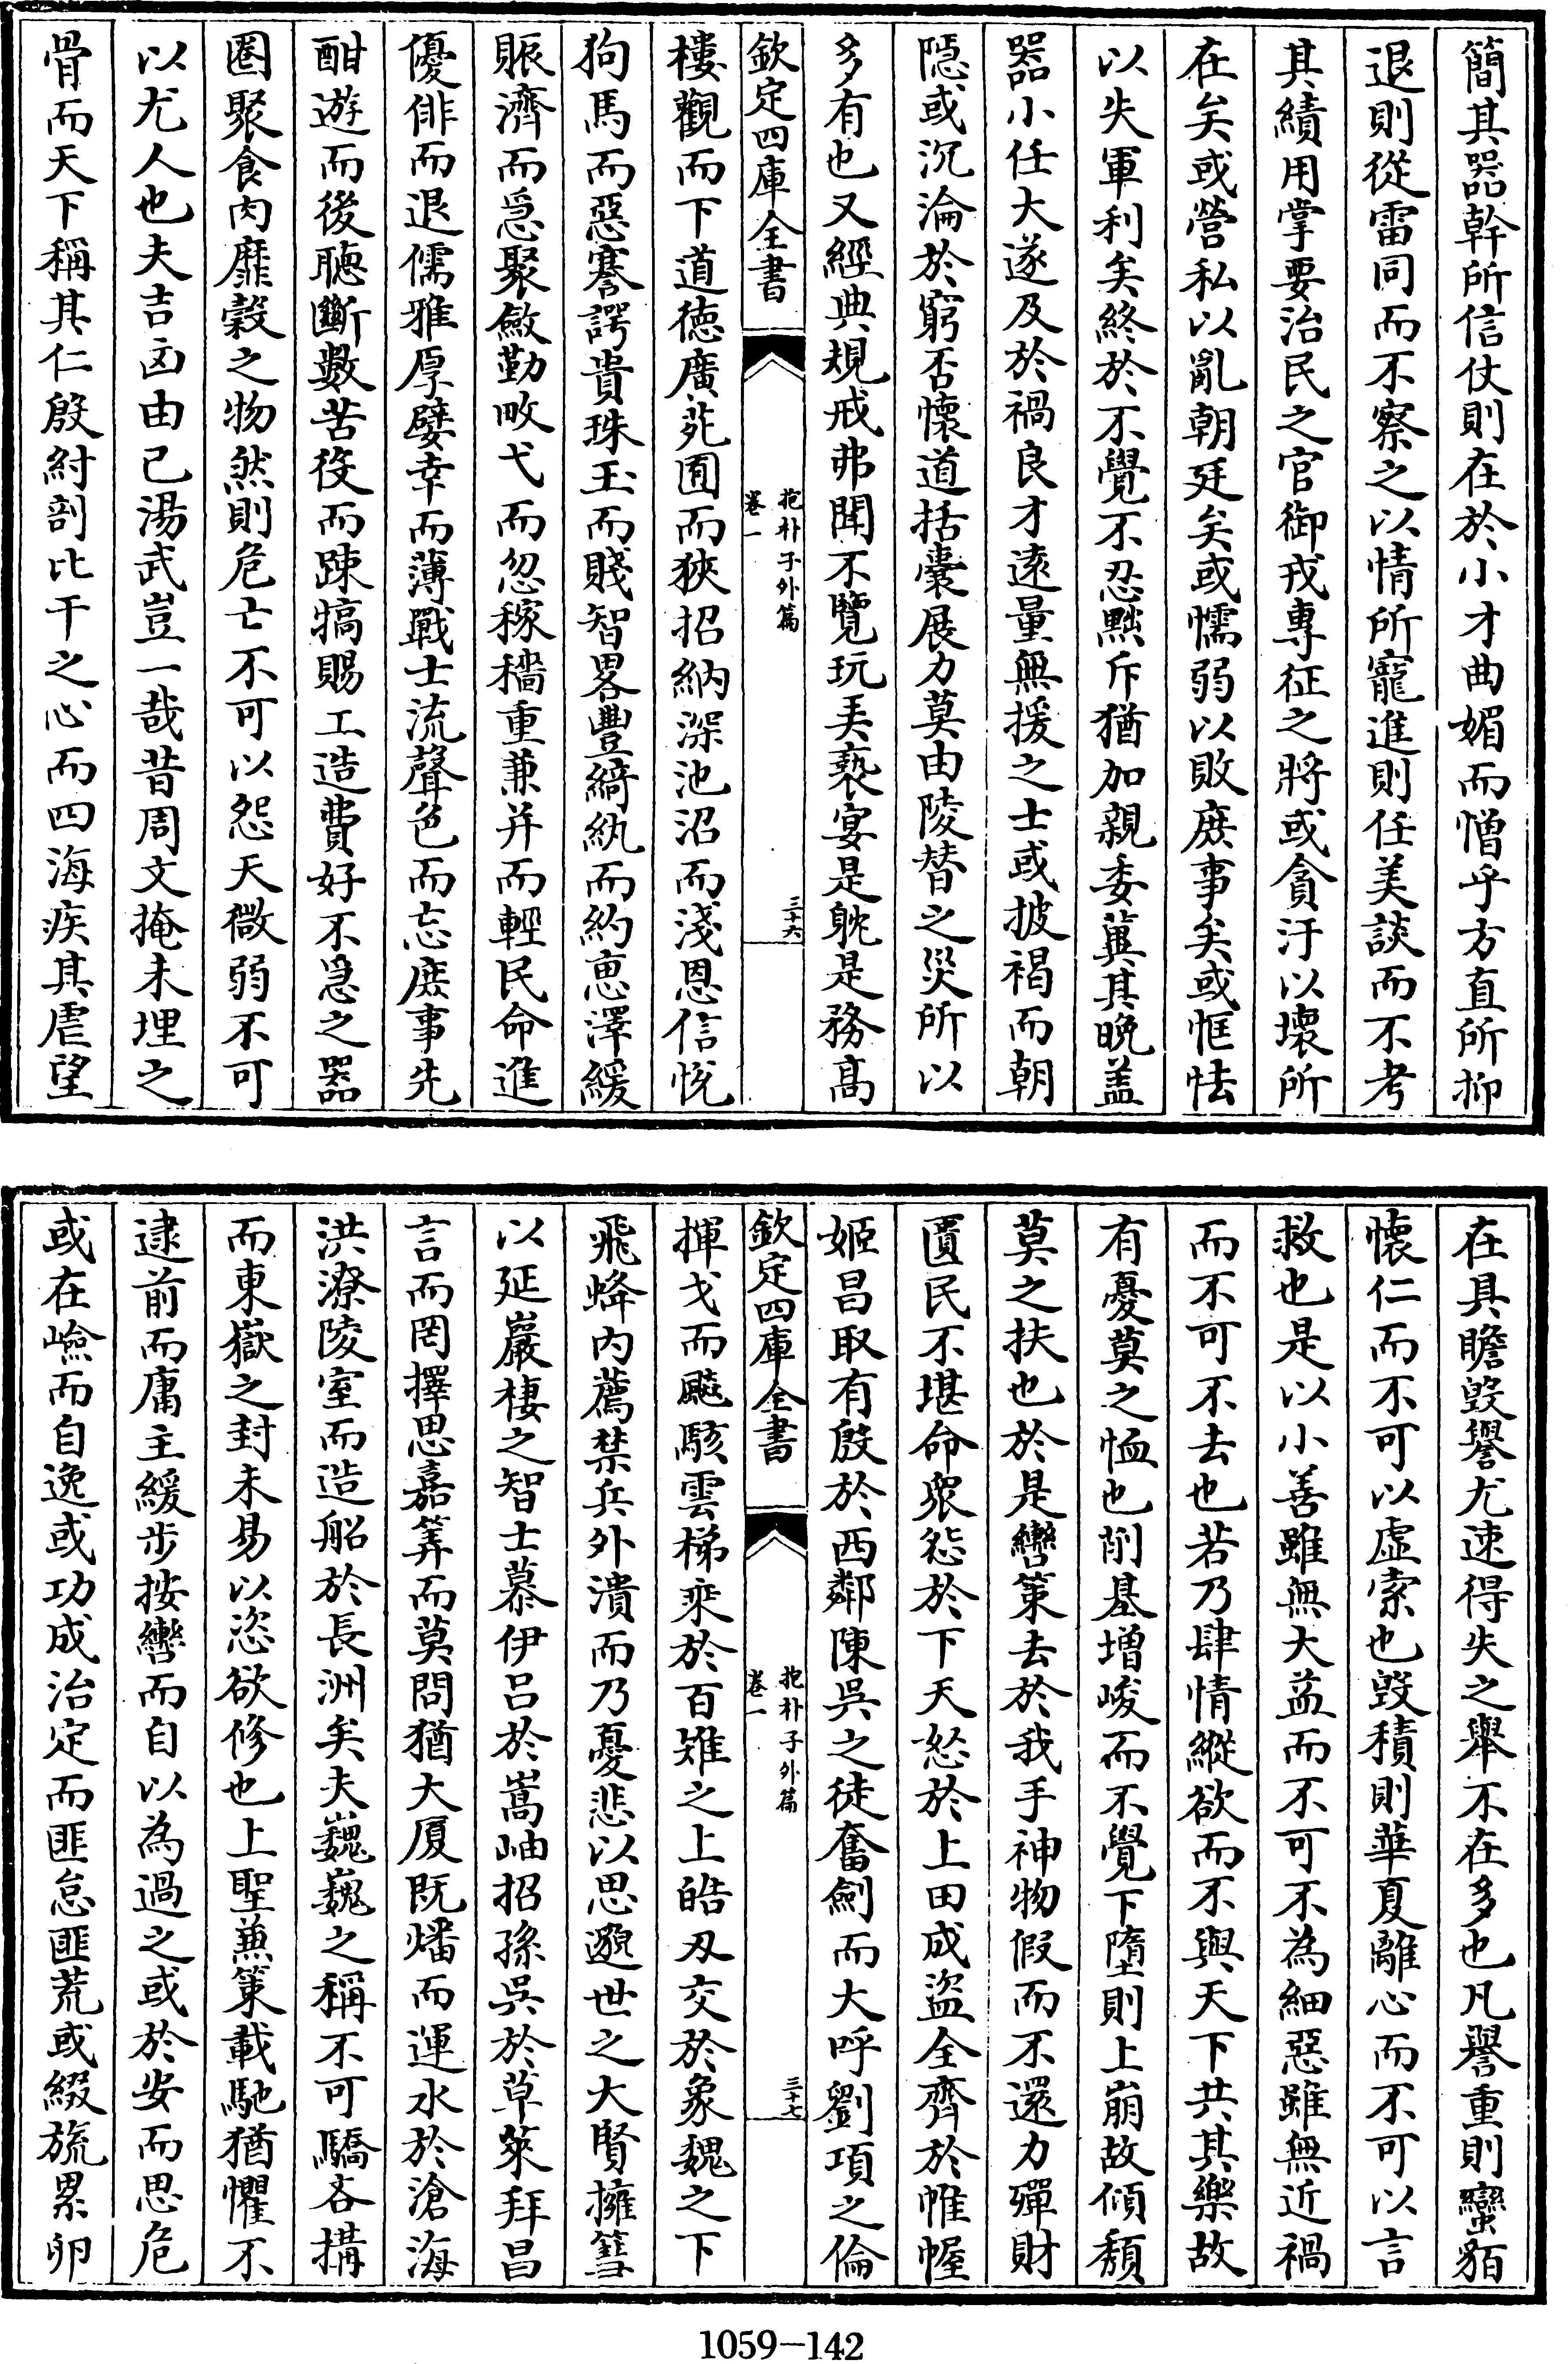 簡其器幹所信仗則在於小才曲媚而憎乎方直所抑
退則從雷同而不察之以情所寵進則任美談而不考
其績用掌要治民之官御戎專征之將或貪汙以壞所
在矣或營私以亂朝廷矣或懦弱以敗庶事矣或恇怯
以失軍利矣終於不覺不忍黜斥猶加親委冀其晚蓋
器小任大遂及於禍良才遠量無援之士或披褐而朝
隱或沉淪於窮否懷道括囊展力莫由陵替之災所以
多有也又經典規戒弗聞不覽玩弄褻宴是耽是務高
欽定四庫全書
抱朴子外篇
卷一
三十六
樓觀而下道德廣苑囿而狹招納深池沼而淺恩信悅
狗馬而惡謇諤貴珠玉而賤智畧豐綺紈而約惠澤緩
賑濟而急聚斂勤畋弋而忽稼穡重兼并而輕民命進
優俳而退儒雅厚嬖幸而薄戰士流聲色而忘庶事先
酣遊而後聽斷數苦役而踈犒賜工造費好不急之器
圈聚食肉靡穀之物然則危亡不可以怨天微弱不可
以尤人也夫吉凶由己湯武豈一哉昔周文掩未埋之
骨而天下稱其仁殷紂剖比干之心而四海疾其虐望
在具瞻毀譽尤速得失之舉不在多也凡譽重則蠻貊
懷仁而不可以虛索也毀積則華夏離心而不可以言
救也是以小善雖無大益而不可不為細惡雖無近禍
而不可不去也若乃肆情縱欲而不與天下共其樂故
有憂莫之恤也削基增峻而不覺下墮則上崩故傾頹
莫之扶也於是轡策去於我手神物假而不還力殫財
匱民不堪命眾怨於下天怒於上田成盜全齊於帷幄
姬昌取有殷於西鄰陳吳之徒奮劍而大呼劉項之倫
欽定四庫全書
抱朴子外篇
卷一
三十七
揮戈而飈駭雲梯乘於百雉之上皓刃交於象魏之下
飛蜂內薦禁兵外潰而乃憂悲以思邈世之大賢擁篲
以延巖棲之智士慕伊呂於嵩岫招孫吳於草萊拜昌
言而罔擇思嘉筭而莫問猶大厦既燔而運水於滄海
洪潦陵室而造船於長洲矣夫巍巍之稱不可驕吝搆
而東嶽之封未易以恣欲修也上聖兼策載馳猶懼不
逮前而庸主緩步按轡而自以為過之或於安而思危
或在嶮而自逸或功成治定而匪怠匪荒或綴旒累卵
1059-142